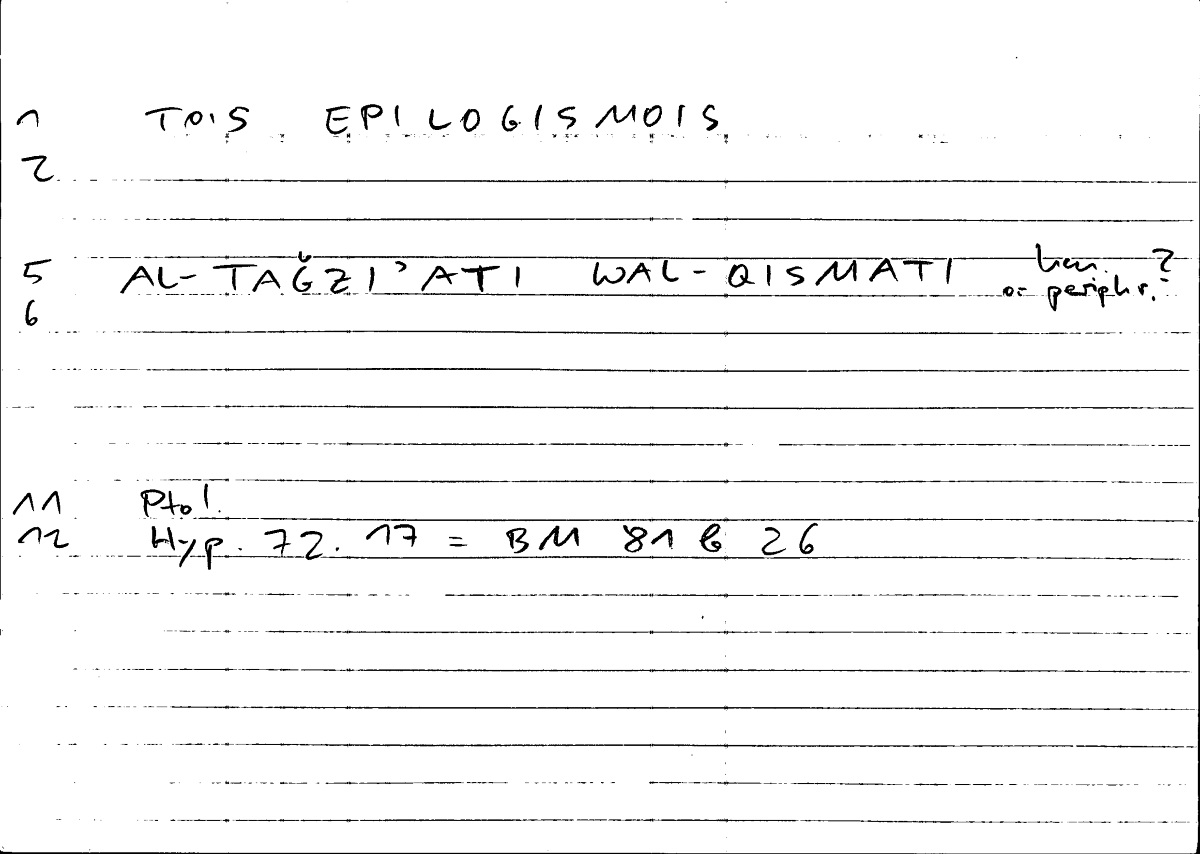 1 TOIS EPILOGISMOIS
2
5 AL-TAǦZI'ATI WAL-QISMATI hen. ?
or periphr.
6
11 Ptol.
12 Hyp. 72. 17 = BM 81 b 26